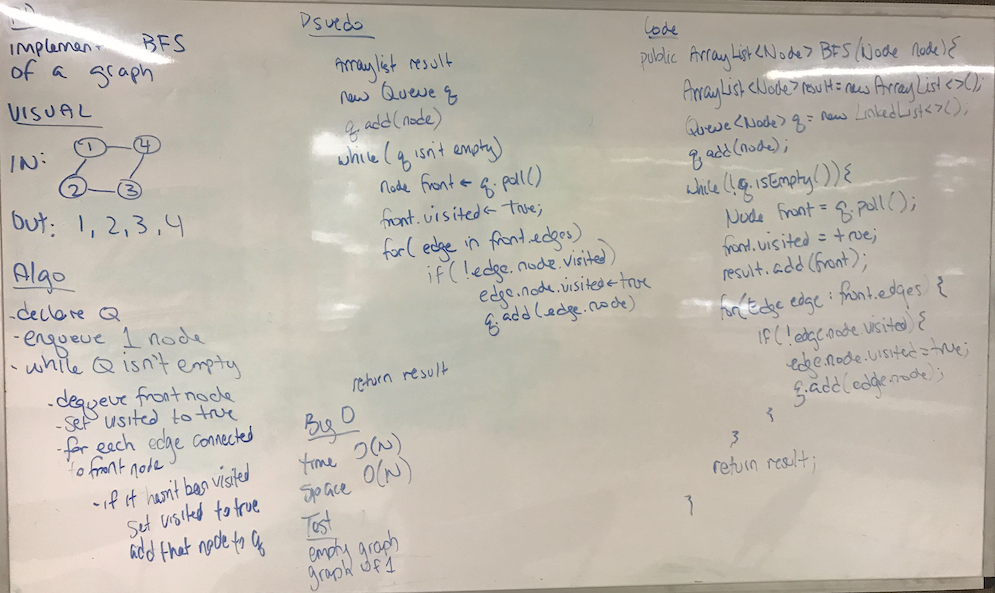 implement BFS
of a graph
VISUAL
IN:
1 4
2 3
Out: 1, 2, 3, 4
Algo
-declare Q
-enqueue 1 node
-while Q isn't empty
-dequeue front node
-set visited to true
-for each edge connected
to front node
-if it hasn't been visited
set visited to true
add that node to q
Psuedo
Arraylist result
new Queue q
q.add(node)
while(q isn't empty)
node front ← q.poll()
front.visited ← true;
for(edge in front.edges)
if(!edge.node.visited)
edge.node.visited ← true
q.add(edge.node)
return result
Big O
time O(N)
space O(N)
Test
empty graph
graph of 1
Code
public ArrayList<Node> BFS(Node node){
ArrayList<Node> result = new ArrayList<>();
Queue<Node> q = new LinkedList<>();
q.add(node);
while(!q.isEmpty()){
Node front = q.poll();
front.visited = true;
result.add(front);
for(Edge edge : front.edges) {
if(!edge.node.visited){
edge.node.visited=true;
q.add(edge.node);
}
}
return result;
}